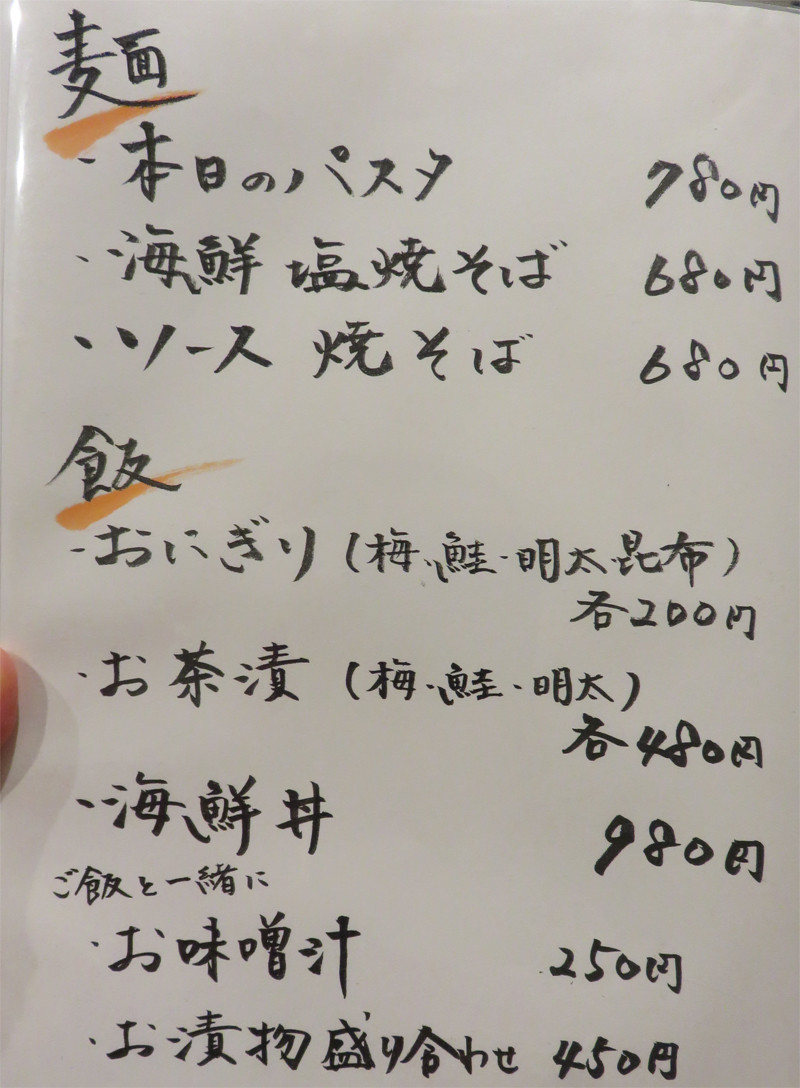 麺
・本日のパスタ 780円
・海鮮塩焼そば 680円
・ソース焼そば 680円
飯
・おにぎり(梅・鮭・明太昆布)
各200円
・お茶漬(梅・鮭・明太)
各480円
・海鮮丼 980円
ご飯と一緒に
・お味噌汁 250円
・お漬物盛り合わせ 450円